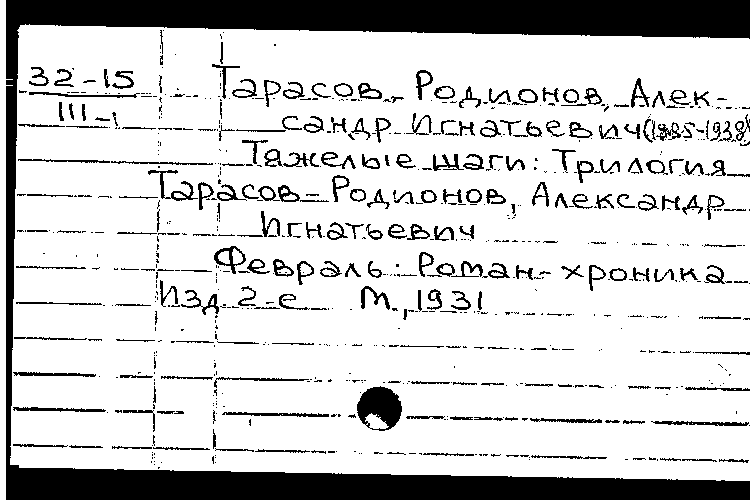 32-15
III-1
Тарасов-Родионов, Алек-
сандр Игнатьевич (1885-1938)
Тяжелые шаги: Трилогия
Тарасов-Родионов, Александр
Игнатьевич
Февраль. Роман-хроника
Изд. 2-е М., 1931